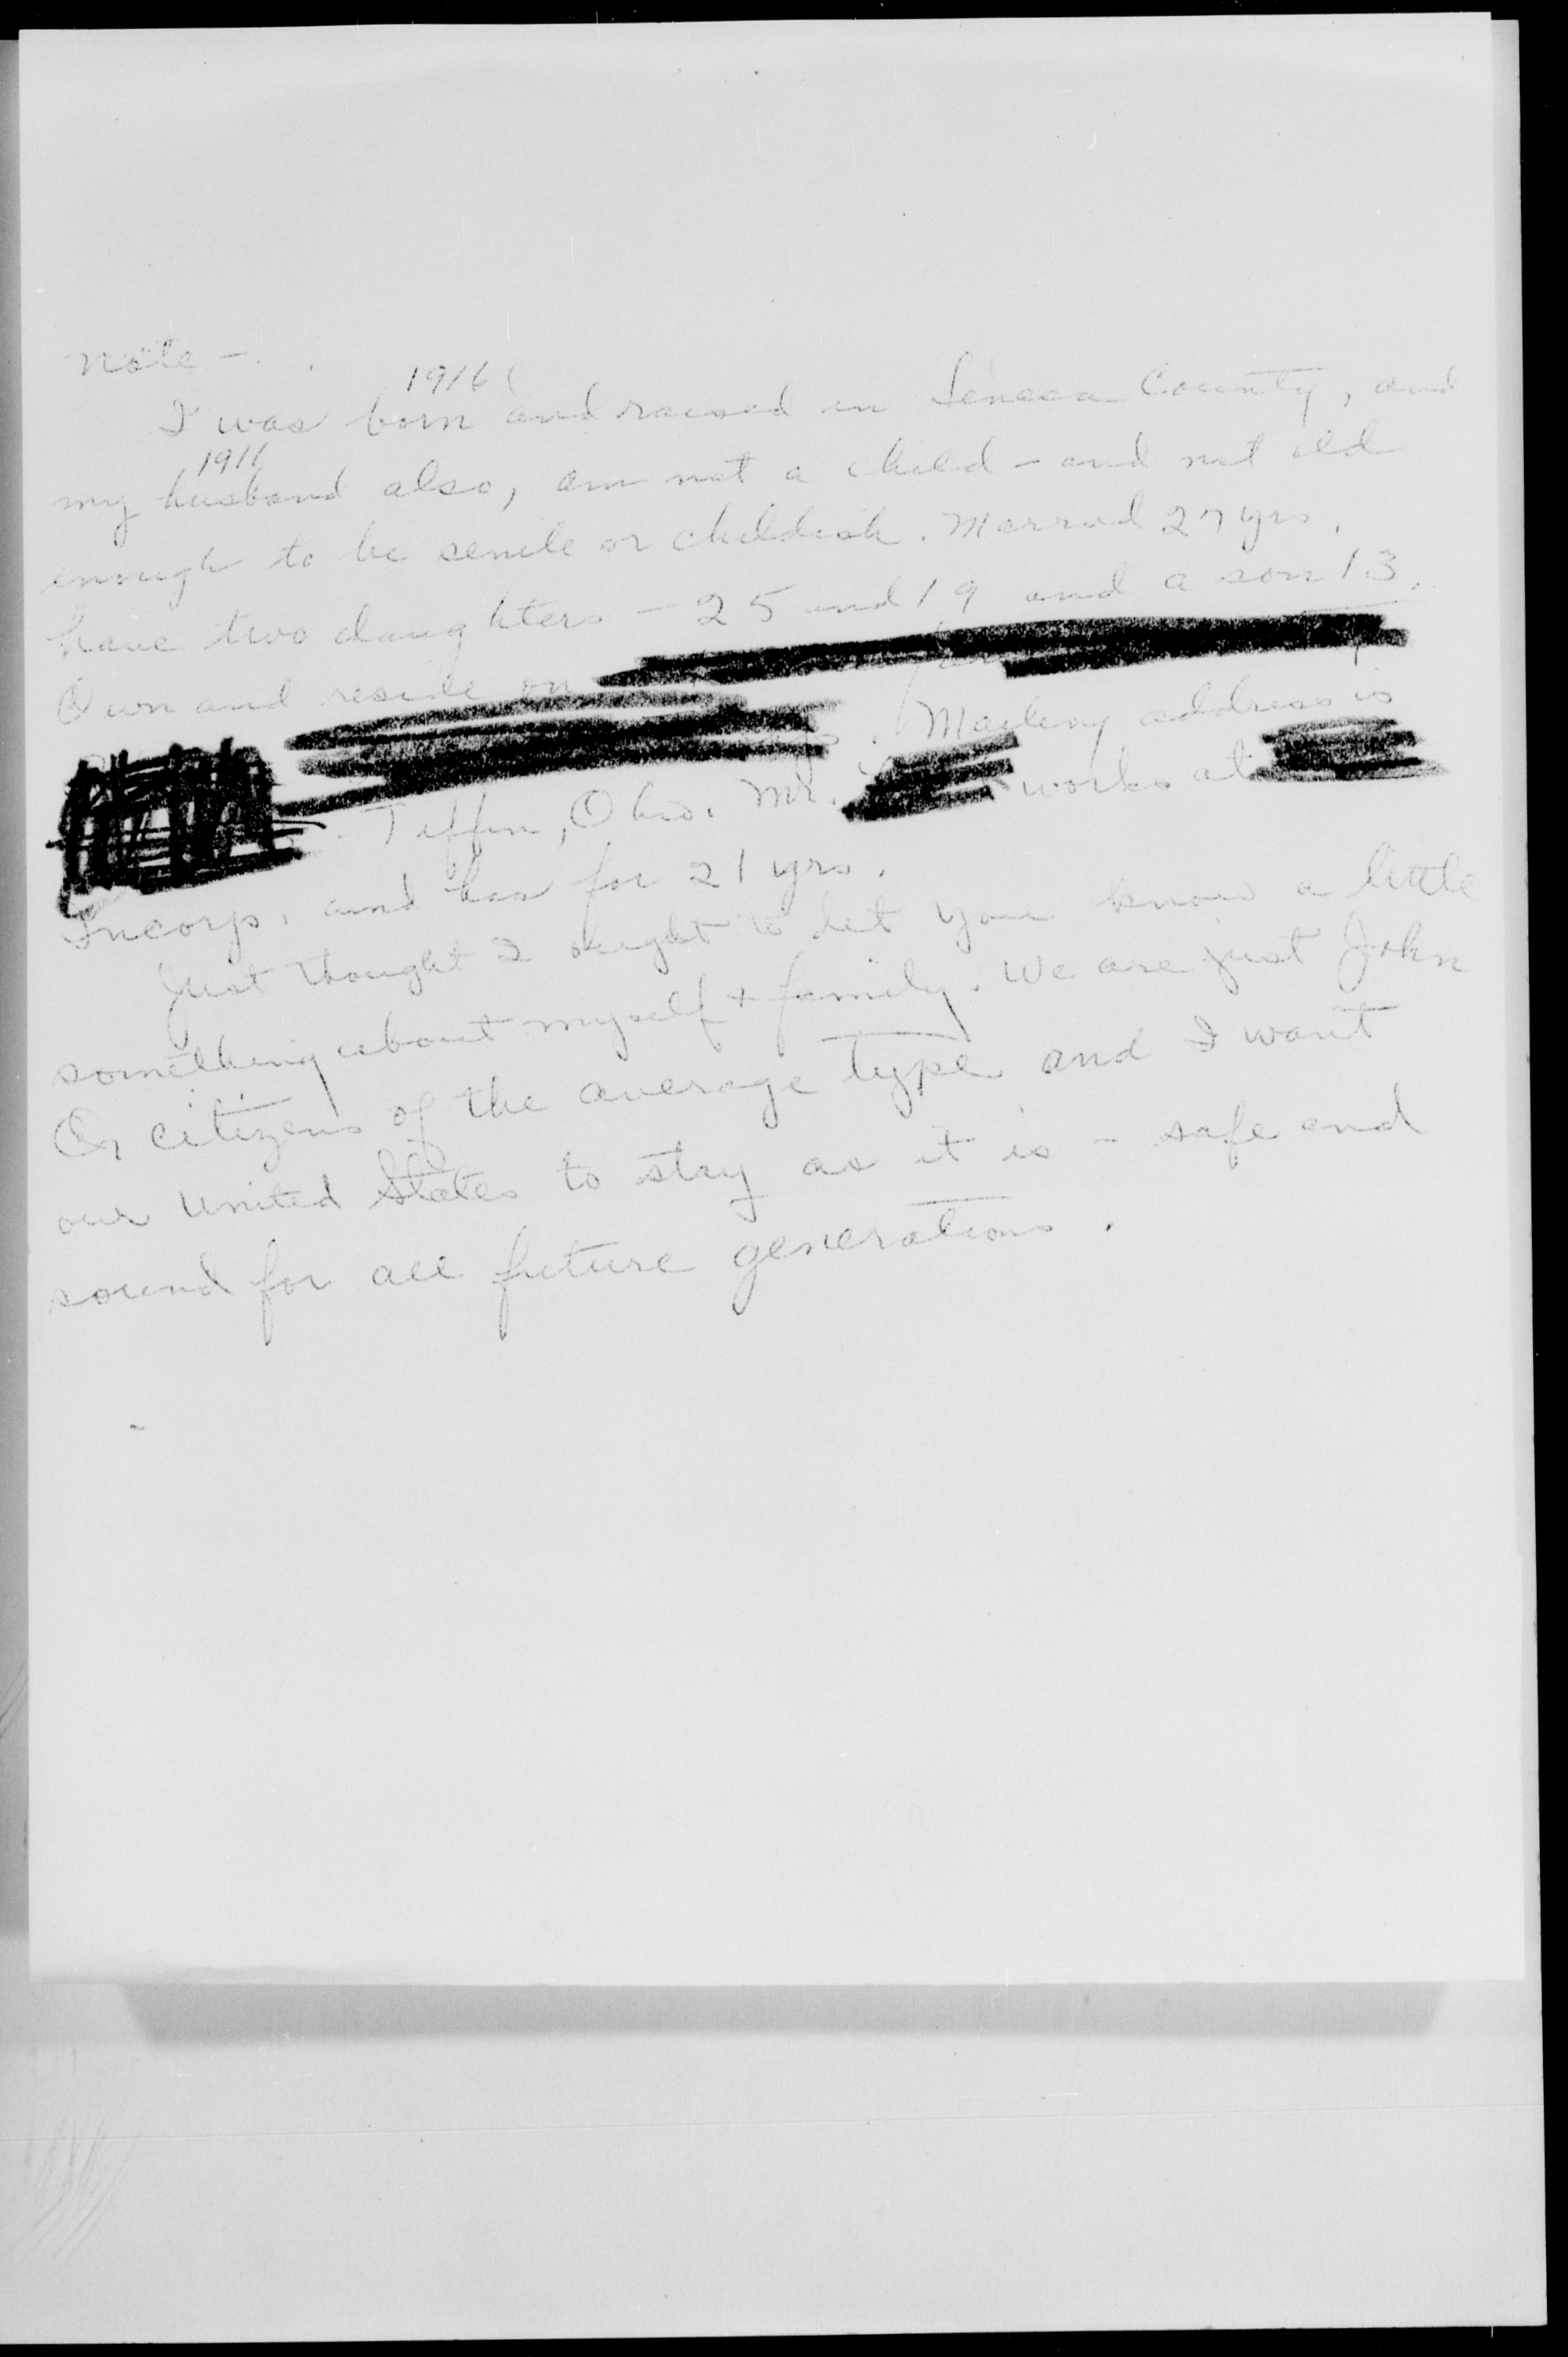 Note -
1916
I was born and raised in Seneca County, and
1911
my husband also, am not a child - and not old
enough to be senile or childish. Married 27 yrs.
have two daughters - 25 and 19 and a son 13.
Own and reside on
Mailing address is
Tiffin, Ohio. Mr. works at
Incorp. and has for 21 yrs.
Just thought I ought to let you know a little
something about myself + family. We are just John
Q citizens of the average type and I want
our United States to stay as it is - safe and
sound for all future generations.